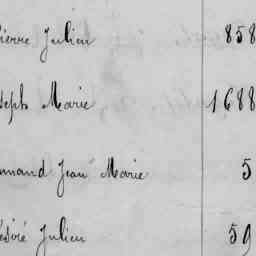 Pierre Julien 858
Joseph Marie 1688
Armand Jean Marie 5
Désiré Julien 59